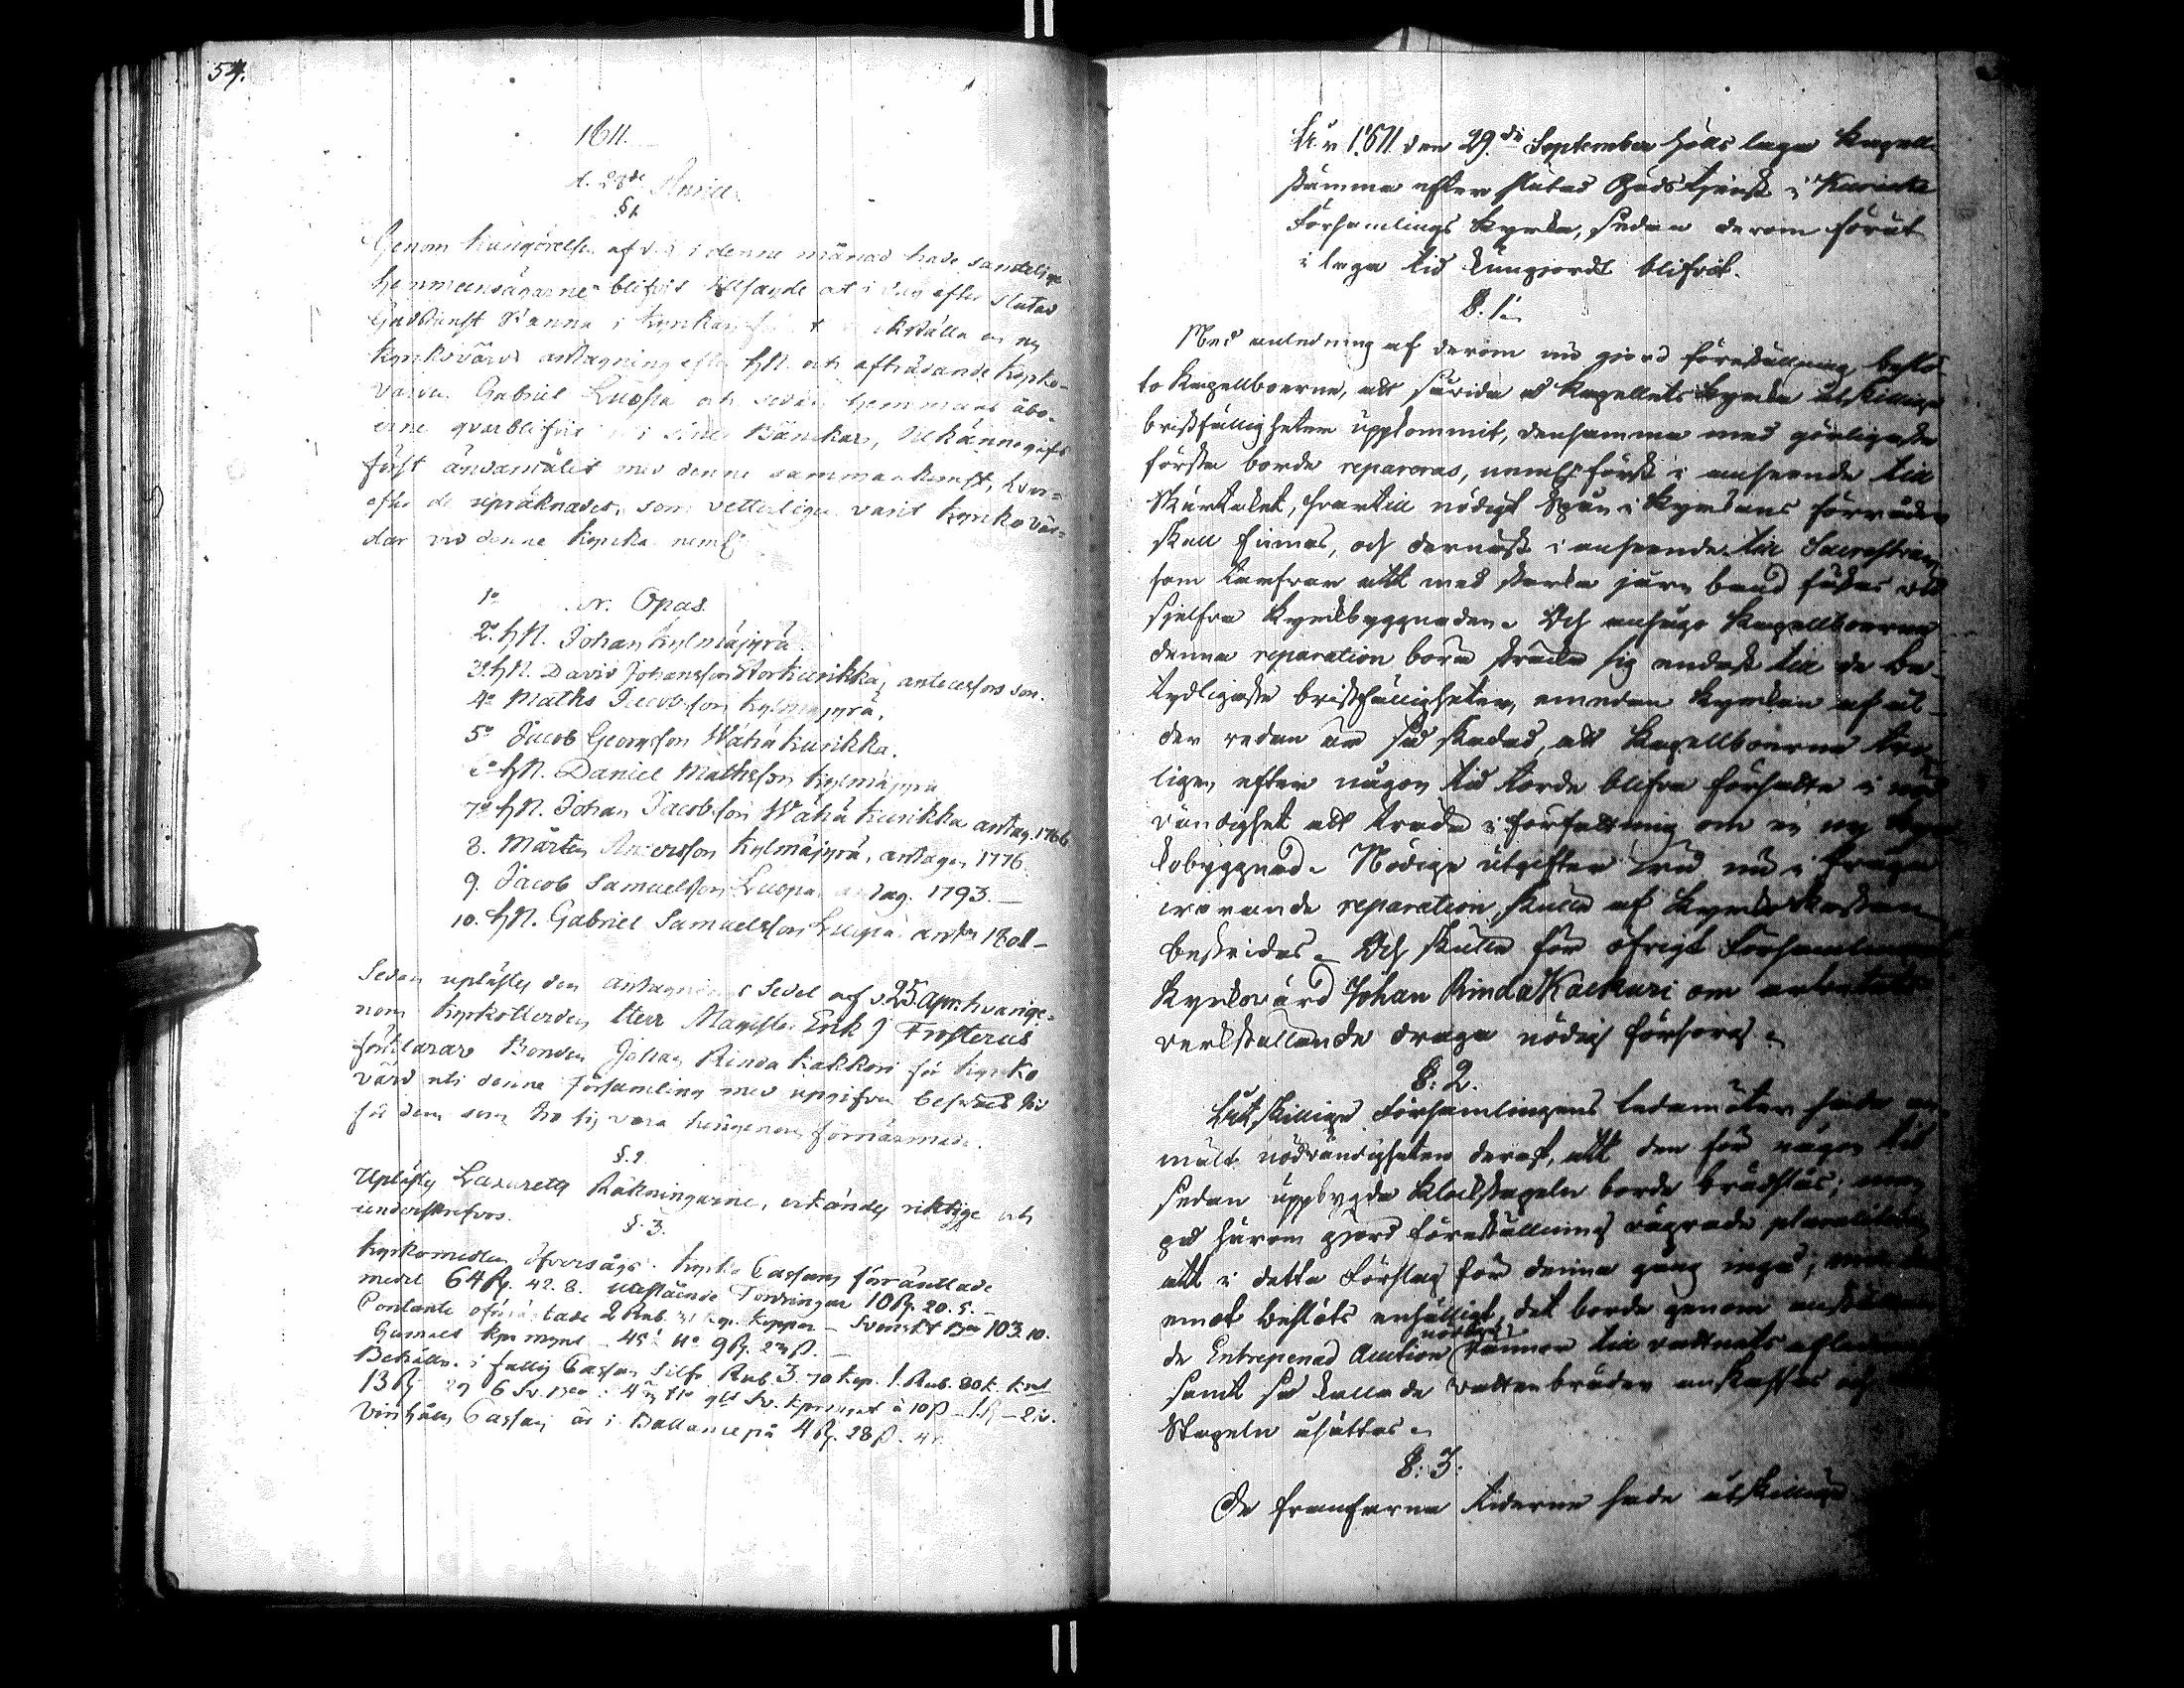 54.
1811.
d. 28de Aprill.
§ 1.
Genom kungörelse af d. i denne månad hade samtelige
Hemmansägarne blifvit tillsagde at i dag efter slutad
Gudstienst stanna i kyrkan för at värkställa en ny
kyrkovärds antagning efter HN. och afträdande kyrko-
värden Gabriel Luopa och sedan hemmans åbo-
erne qvarblifvit uti sine Bänkar, tilkännegafs
först ändamålet med denne sammankomst, hvar-
efter de upräknades, som vetterligen varit kyrkovär-
dar vid denne kyrka neml:
1o Opas.
2o HN. Johan Kylmäjyrä
3o HN. David Johansson Storkurikka, antecessors son.
4o Maths Jacobsson Kylmäjyrä.
5o Jacob Georgsson Wähäkurikka.
6o HN. Daniel Mathsson Kylmäjyrä
7o HN. Johan Jacobsson Wähäkurikka antag. 1766
8. Mårten Andersson Kylmäjyrä, antagen 1776.
9. Jacob Samuelsson Luopa antag. 1793.
10. HN. Gabriel Samuelsson Luopa ant. 1801
Sedan uplästes den antagnings Sedel af d. 25. Apr. hvarige-
nom Kyrkoherden Herr Magister Erik J Frosterus
förklarar Bonden Johan Rinda Kakkori för kyrko
värd uti denne församling med upgifven besvärs tid
för dem som tro sig vara härigenom förnärmade.
§. 2.
Uplästes Lazaretts Räkningarne, erkändes riktige och
underskrefvos.
§. 3.
Kyrkomedlen öfversågs. Kyrko Cassans förräntade
medel 64 R. 42. 8. utestående Fordringar 10 R. 20. 5.
Contante oförräntade 2 Rub. kop. koppar Svenskt B:co 103. 10.
Gammalt kprmynt 9 R. 23 ß.
Behålln. i fattig Cassan Silfr. Rub. 3. 70 kop. 1. Rub. 80 k. kprt
13 R 29 6 Sv. B:co Sv. kprmynt à 10 ß
Vinhålls Cassan är i Ballance på 4 R. 28 ß. 4 r.
År 1811 den 29:de September hölls laga Kapell-
stämma efter slutad Gudstjenst i Kurikka
Församlings kyrka, sedan derom förut
i laga tid kungjordt blifvit.
§. 1.
Med anledning af derom nu gjord föreställning beslö-
to Kapellboerne, att såvida å Kapellets kyrka åtskillige
bristfälligheter uppkommit, densamma med görligaste
första borde repareras, neml. först i anseende till
Skurtaket, hvartill nödigt Spån i Kyrkans förråder
skall finnas, och dernäst i anseende till Sacrestian,
som tarfvar att med starka jern band fästas vid
sjelfva Kyrkbyggnaden. Och ansågo Kapellboerne
denna reparation böra sträcka sig endast till de be-
tydligaste bristfälligheter, emedan Kyrkan af ål-
der redan är så skadad, att Kapellboerne tro-
ligen efter någon tid torde blifva försatte i nöd
vändighet att träda i författning om en ny kyr
kobyggnad. Nödige utgifter vid nu i fråga
warande reparation skulle af Kyrko Kassan
bestridas. Och skulle för öfrigt Församlingens
Kyrkovärd Johan Rinda Kackuri om arbetets
verkställande draga nödig försorg.
§. 2.
Åtskillige Församlingens ledamöter hade an
mält nödvändigheten deraf, att den för någon tid
sedan uppbygde Klockstapeln borde brädslås; men
på härom gjord föreställning vägrade pluraliteten
att i detta Förslag för denna gång ingå; men der
emot beslöts enhälligt, det borde genom anställan
de Entrepenad Auction nödige rännor till vattnets afledande
samt så kallade vattenbräder anskaffas och
Stapeln åsättas.
§. 3.
De framfarna tiderna hade åtskillige